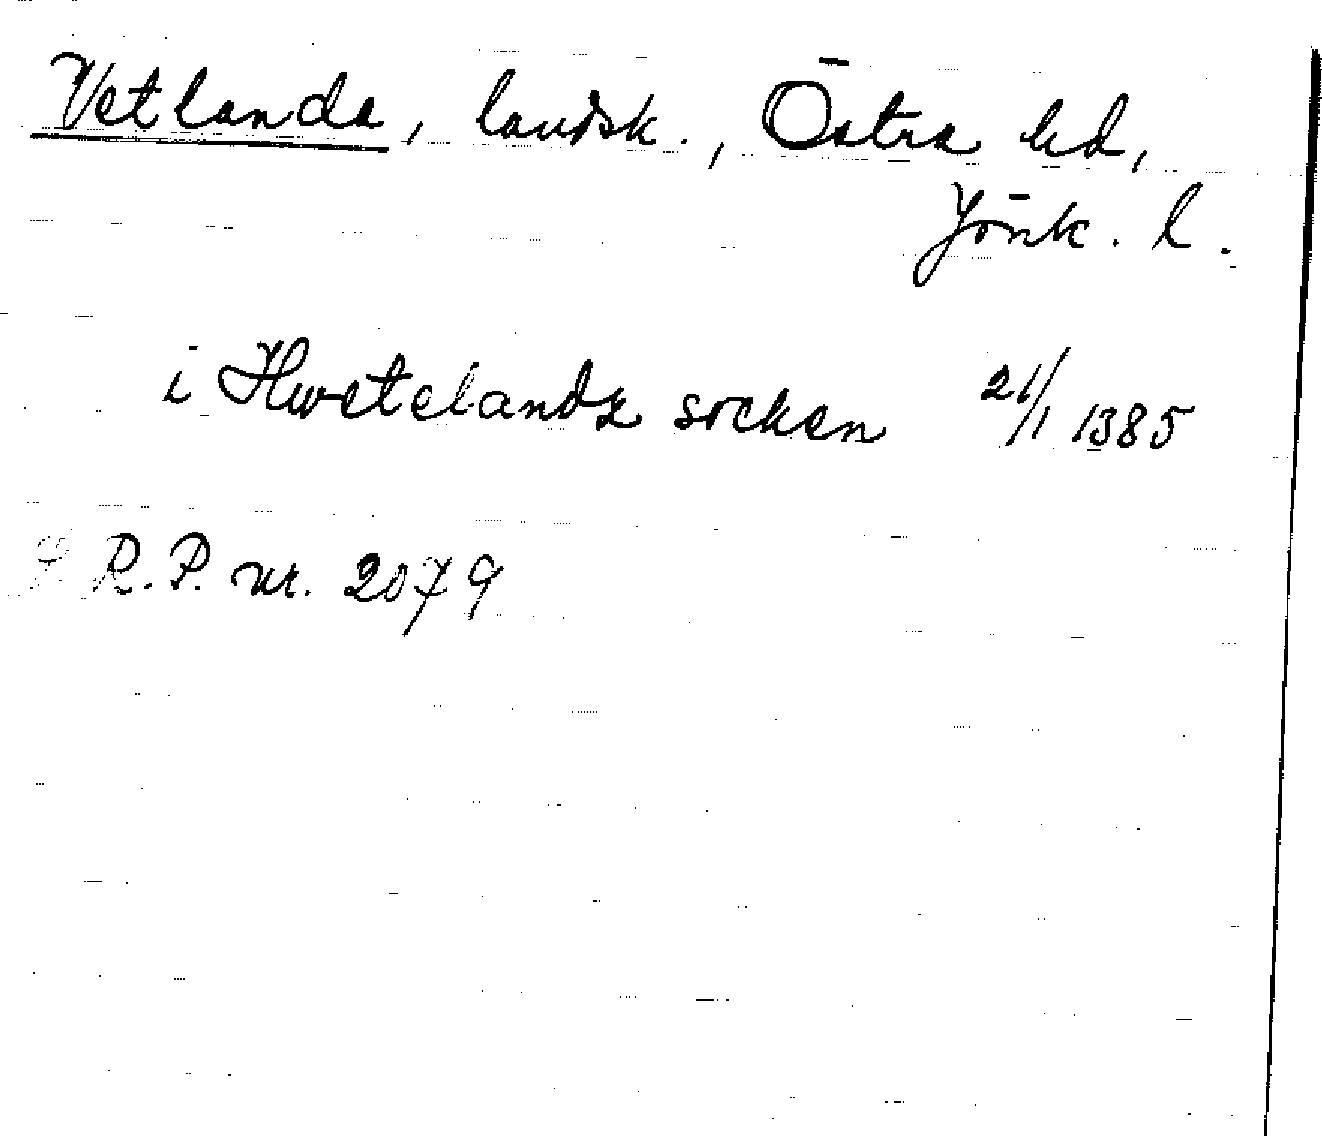 Vetlanda, landsk., Östra hd,
Jönk. l.
i Hwetelandz socken 21/1 1385
R.P. nr. 2079